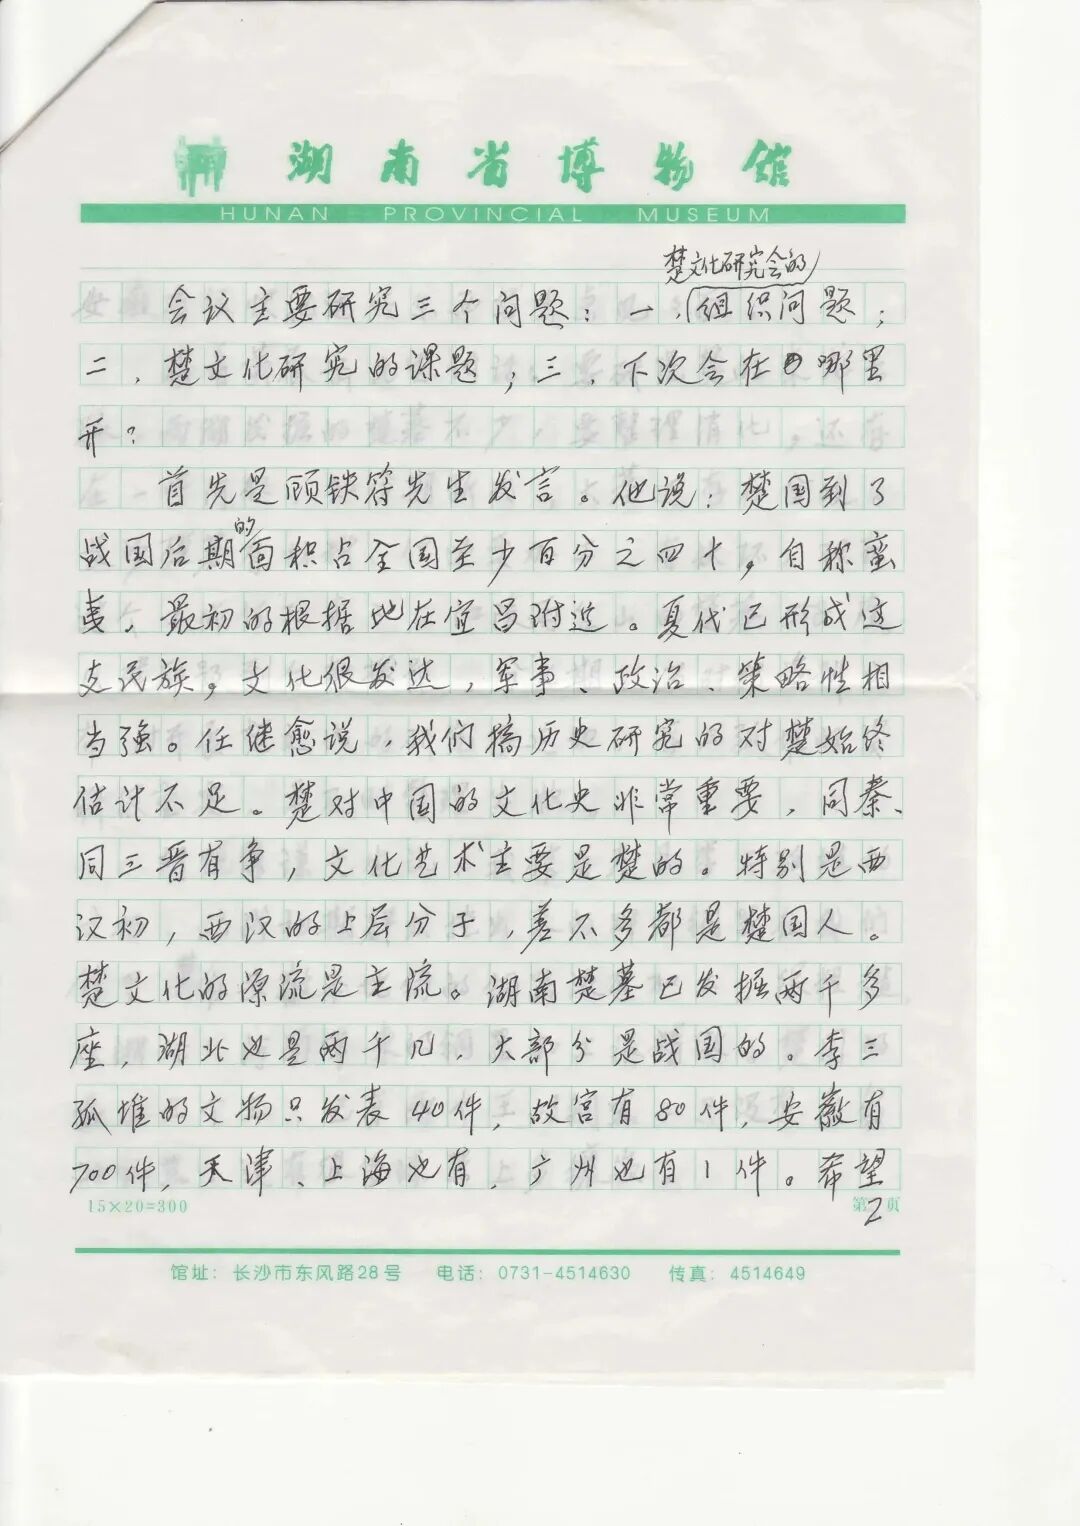 湖南省博物馆
HUNAN PROVINCIAL MUSEUM
楚文化研究会的
会议主要研究三个问题：一、组织问题；
二、楚文化研究的课题；三、下次会在哪里
开？
首先是顾铁符先生发言。他说：楚国到了
的
战国后期面积占全国至少百分之四十，自称蛮
夷，最初的根据地在宜昌附近。夏代已形成这
支民族，文化很发达，军事、政治、策略性相
当强。任继愈说，我们搞历史研究的对楚始终
估计不足。楚对中国的文化史非常重要，同秦、
同三晋有争，文化艺术主要是楚的。特别是西
汉初，西汉的上层分子，差不多都是楚国人。
楚文化的源流是主流。湖南楚墓已发掘两千多
座，湖北也是两千几，大部分是战国的。李三
孤堆的文物只发表40件，故宫有80件，安徽有
700件，天津、上海也有，广州也有1件。希望
15×20=300
第2页
馆址：长沙市东风路28号 电话：0731-4514630 传真：4514649